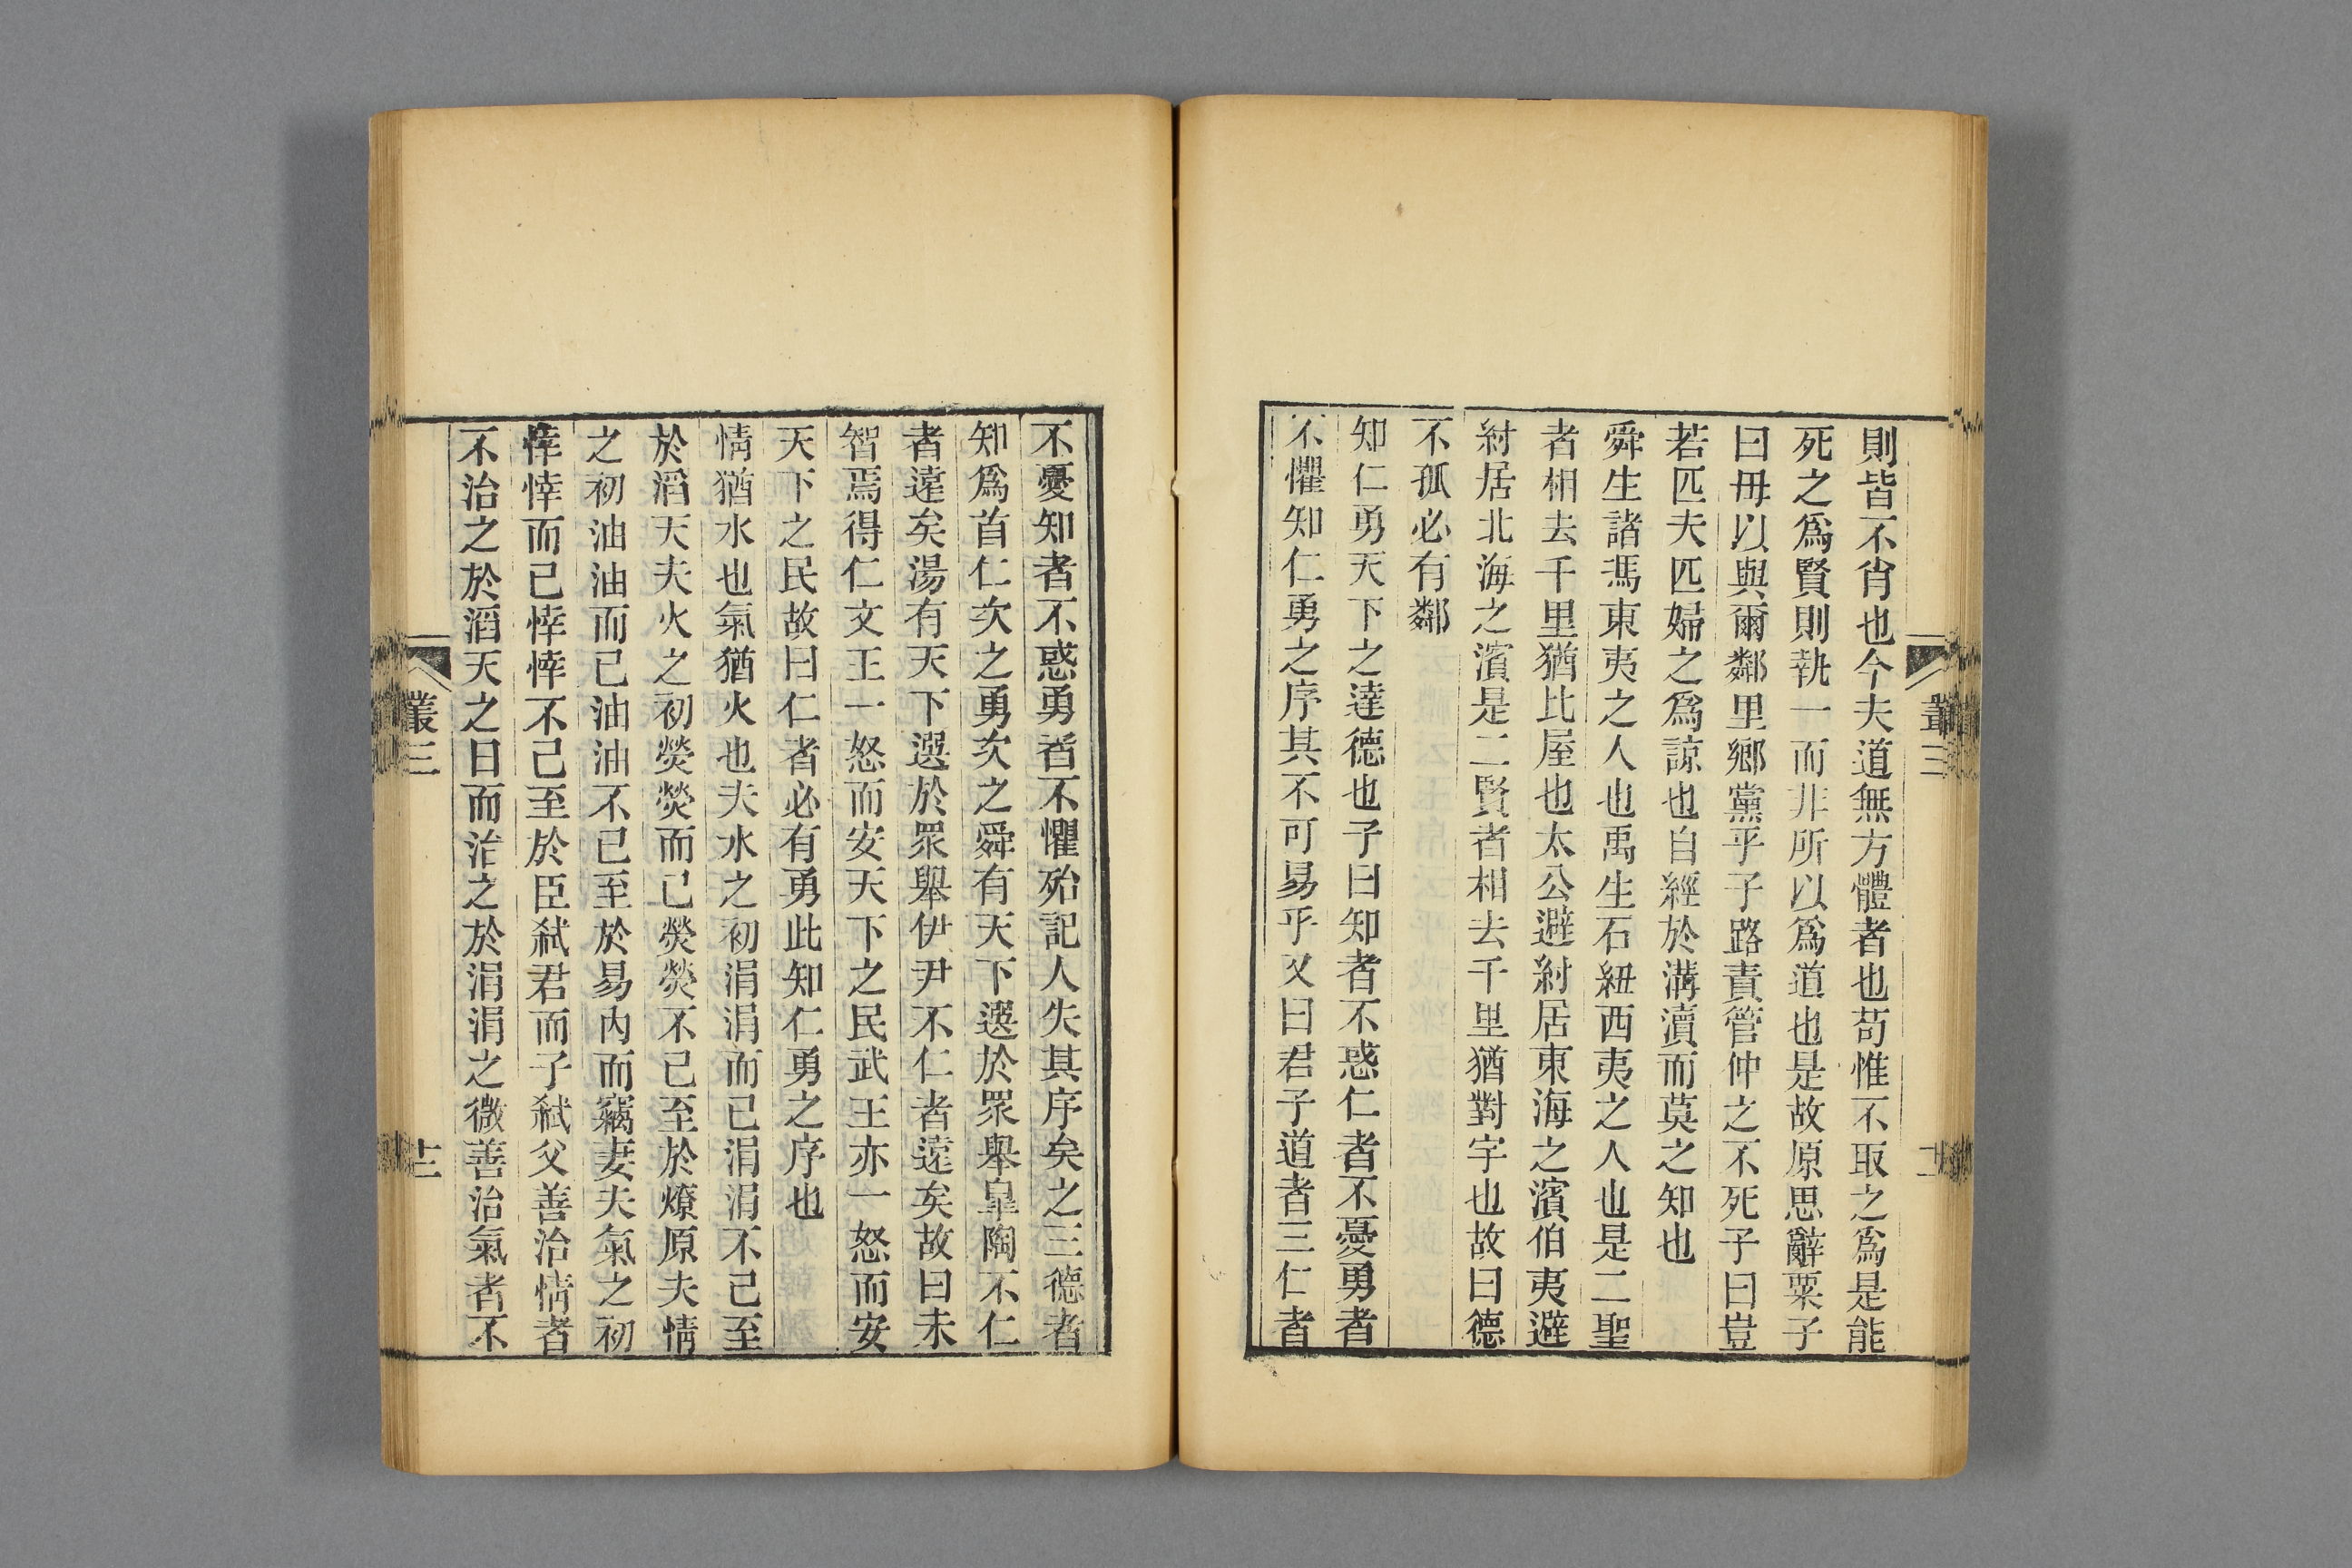 則皆不肖也今夫道無方體者也苟惟不取之爲是能
死之爲賢則執一而非所以爲道也是故原思辭粟子
曰毋以與爾鄰里鄉黨乎子路責管仲之不死子曰豈
若匹夫匹婦之爲諒也自經於溝瀆而莫之知也
舜生諸馮東夷之人也禹生石紐西夷之人也是二聖
者相去千里猶比屋也太公避紂居東海之濱伯夷避
紂居北海之濱是二賢者相去千里猶對宇也故曰德
不孤必有鄰
知仁勇天下之達德也子曰知者不惑仁者不憂勇者
不懼知仁勇之序其不可易乎又曰君子道者三仁者
叢三
不憂知者不惑勇者不懼殆記人失其序矣之三德者
知爲首仁次之勇次之舜有天下選於眾舉皐陶不仁
者遠矣湯有天下選於眾舉伊尹不仁者遠矣故曰未
智焉得仁文王一怒而安天下之民武王亦一怒而安
天下之民故曰仁者必有勇此知仁勇之序也
情猶水也氣猶火也夫水之初涓涓而已涓涓不已至
於滔天夫火之初熒熒而已熒熒不已至於燎原夫情
之初油油而已油油不已至於易內而竊妻夫氣之初
悻悻而已悻悻不已至於臣弒君而子弒父善治情者
不治之於滔天之日而治之於涓涓之微善治氣者不
叢三